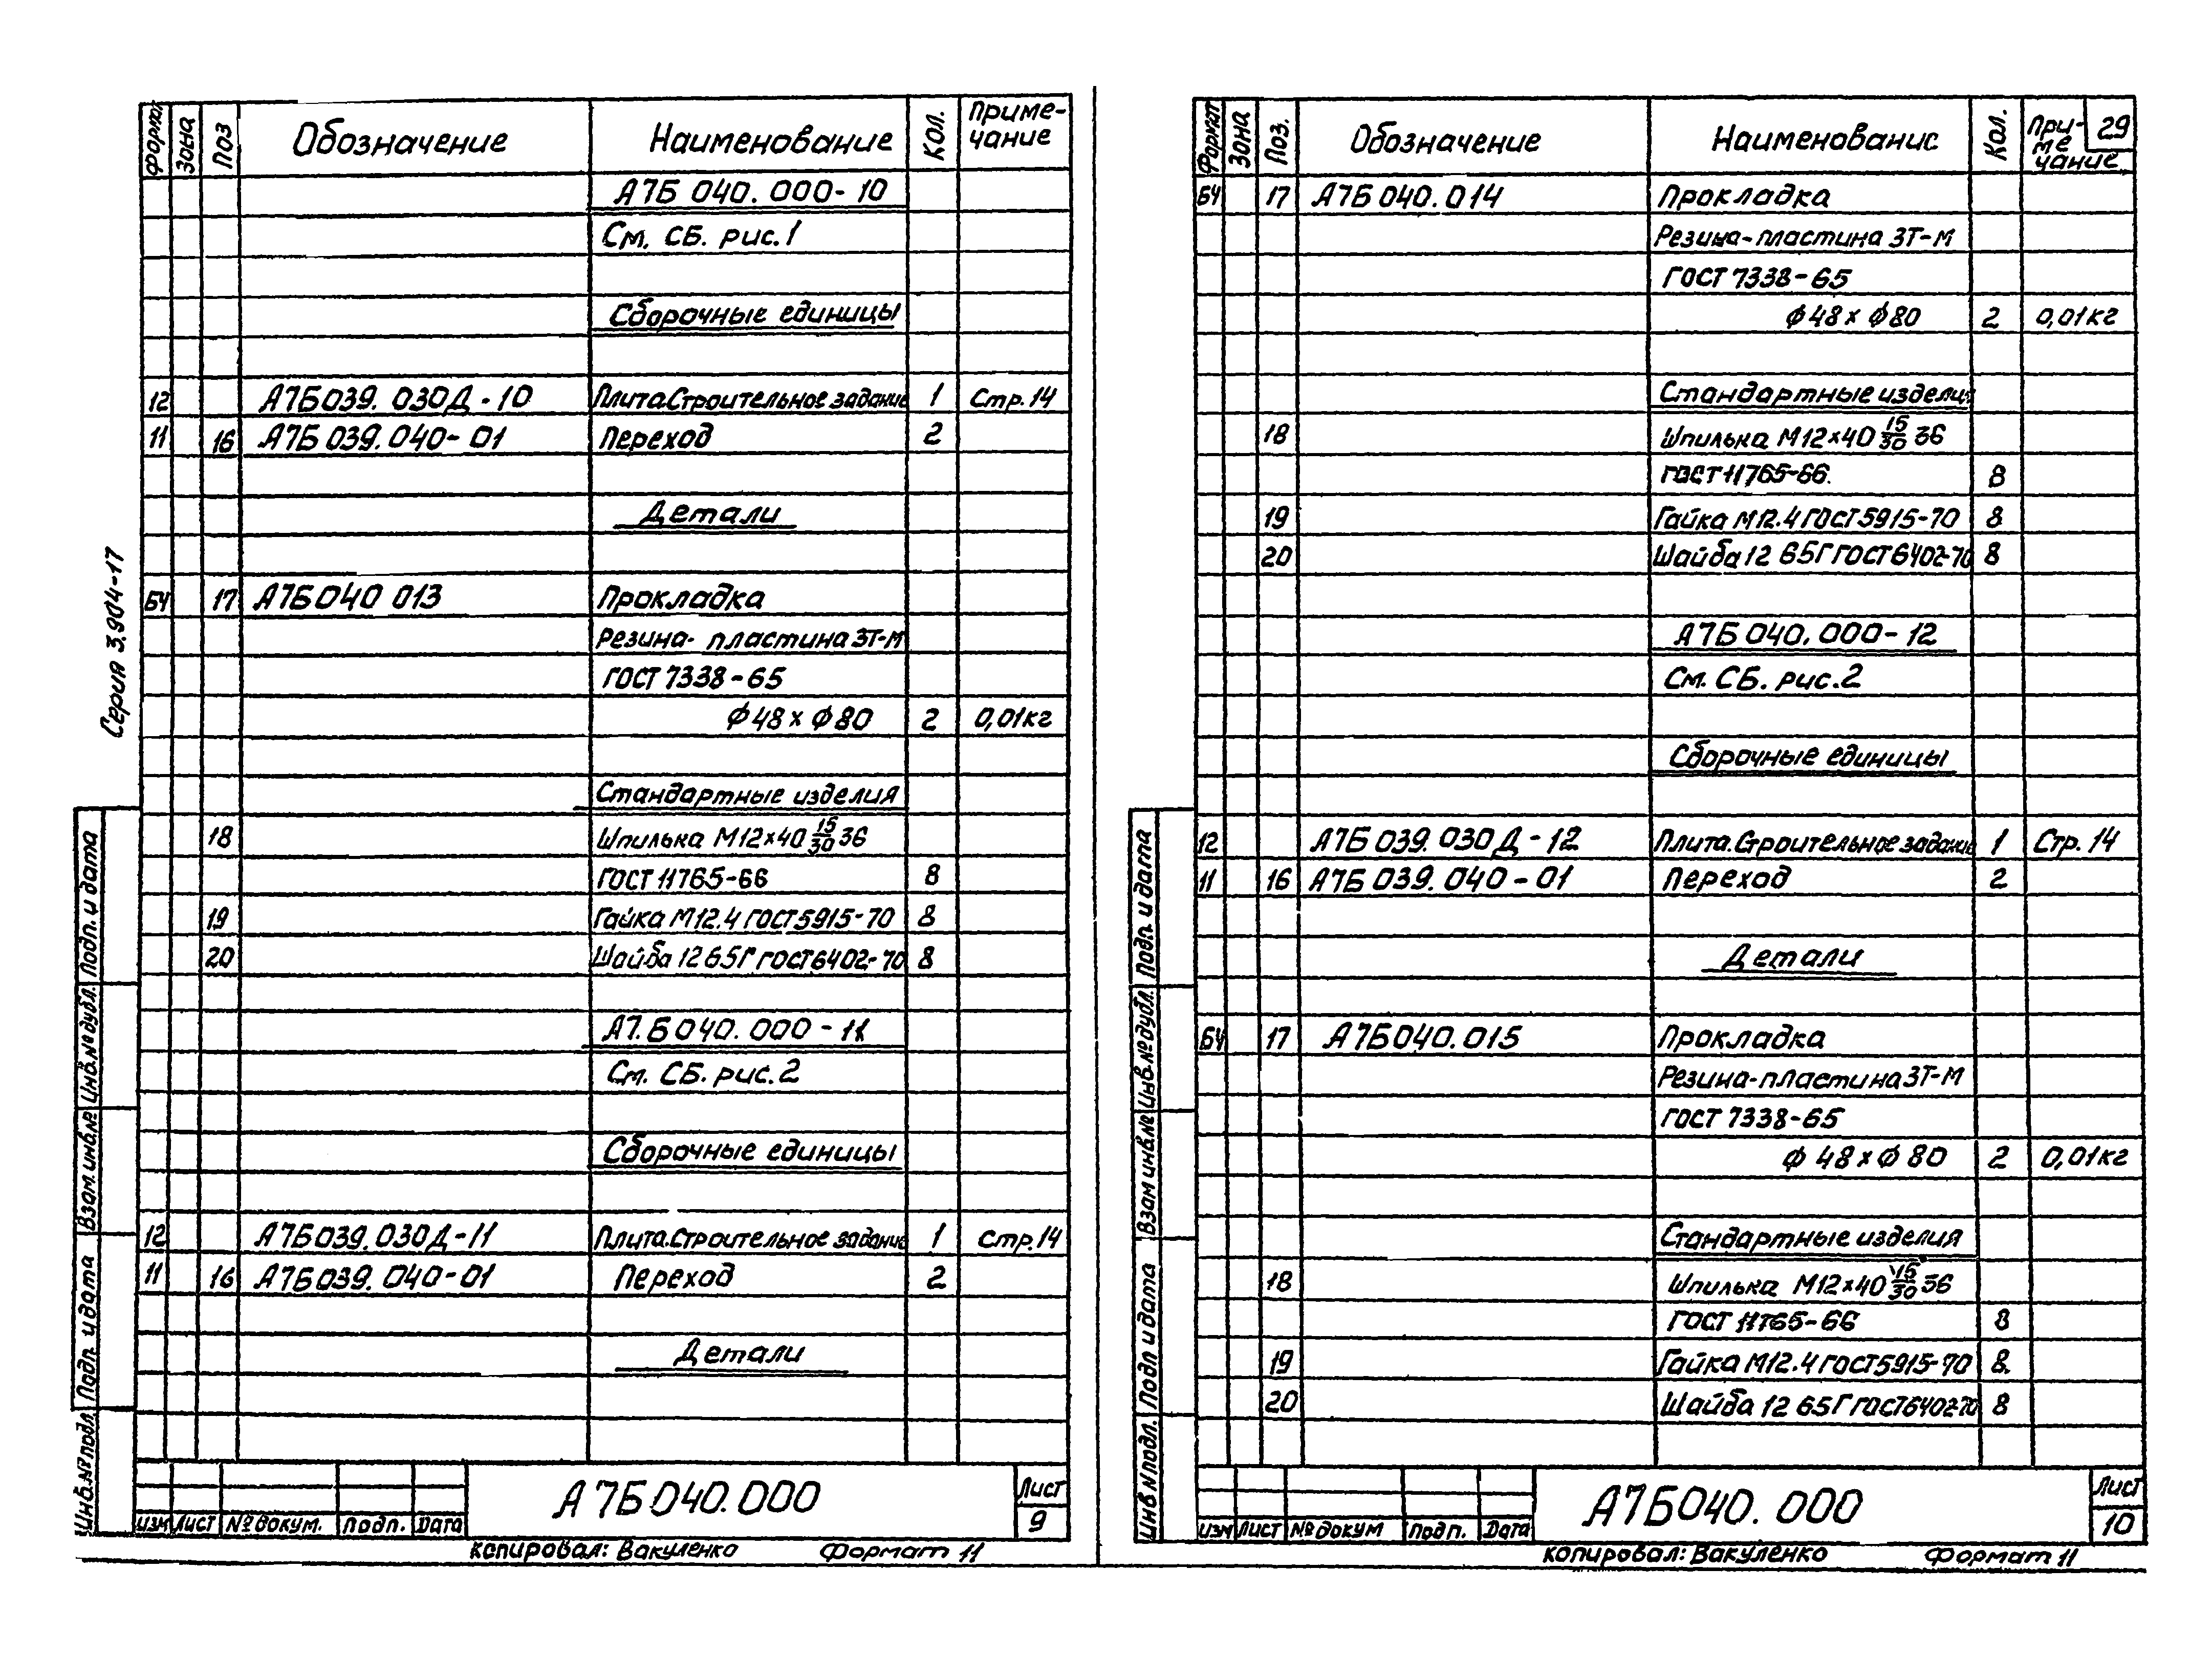 Серия 3.904-17
Формат Зона Поз Обозначение Наименование Кол. Приме-
чание
А7Б 040.000-10
См. СБ. рис.1
Сборочные единицы
12 А7Б039.030Д-10 Плита.Строительное задание 1 Стр.14
11 16 А7Б 039.040-01 Переход 2
Детали
БЧ 17 А7Б040 013 Прокладка
Резина- пластина 3Т-М
ГОСТ 7338-65
ф48хф80 2 0,01кг
Стандартные изделия
18 Шпилька М12х40 15/30 36
ГОСТ 11765-66 8
19 Гайка М12.4 ГОСТ5915-70 8
20 Шайба 12 65Г ГОСТ6402-70 8
А7.Б040.000-11
См. СБ. рис.2
Сборочные единицы
12 А7Б039.030Д-11 Плита.Строительное задание 1 Стр.14
11 16 А7Б039.040-01 Переход 2
Детали
Подп. и дата
Инв.№дубл.
Взам.инв.№
Подп. и дата
Инв.№подл.
Изм Лист №докум. Подп. Дата
А7Б040.000
Лист
9
копировал: Вакуленко Формат 11
Формат Зона Поз. Обозначение Наименованис Кол. При-
ме
чание
29
БЧ 17 А7Б 040.014 Прокладка
Резина-пластина 3Т-М
ГОСТ 7338-65
ф48х ф80 2 0,01кг
Стандартные изделия
18 Шпилька М12х40 15/30 36
ГОСТ 11765-66. 8
19 Гайка М12.4 ГОСТ5915-70 8
20 Шайба 12 65Г ГОСТ6402-70 8
А7Б 040.000-12
См. СБ. рис.2
Сборочные единицы
12 А7Б 039.030Д-12 Плита.Строительное задание 1 Стр.14
11 16 А7Б 039.040-01 Переход 2
Детали
БЧ 17 А7Б040.015 Прокладка
Резина-пластина 3Т-М
ГОСТ 7338-65
ф 48хф 80 2 0,01кг
Стандартные изделия
18 Шпилька М12х40 15/30 36
ГОСТ 11765-66 8
19 Гайка М12.4 ГОСТ5915-70 8
20 Шайба 12 65Г ГОСТ6402-70 8
Подп. и дата
Инв.№дубл.
Взам инв.№
Подп и дата
Инв №подл.
Изм Лист №докум Подп. Дата
А7Б040.000
Лист
10
копировал: Вакуленко Формат 11